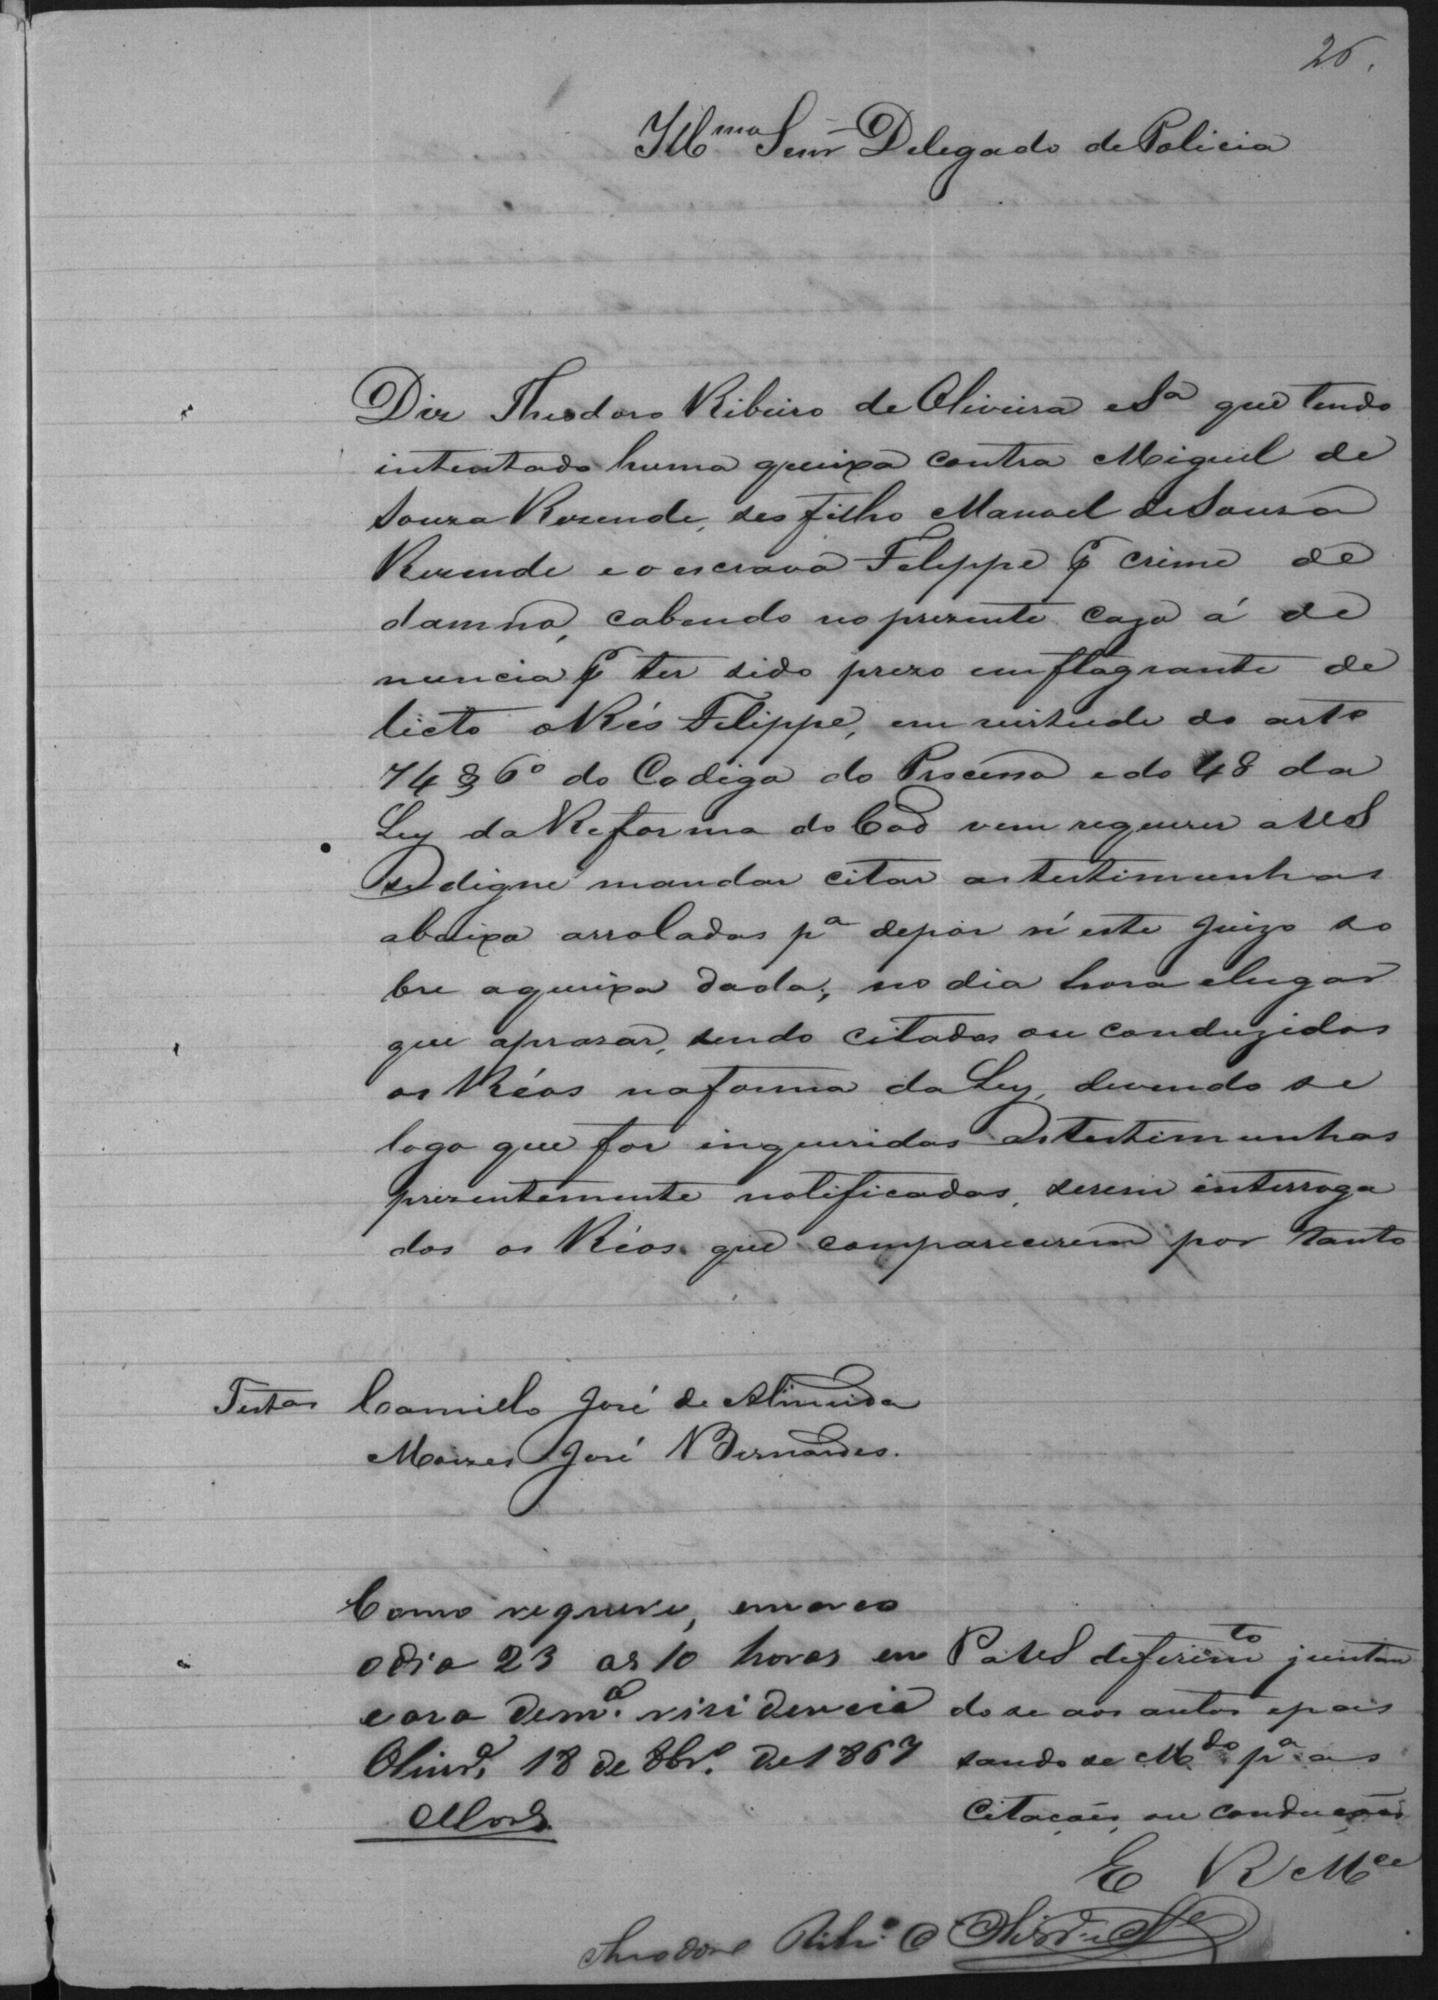 26.
Illmo Senr Delegado de Policia
Diz Theodoro Ribeiro de Oliveira e Sa que tendo
intentado huma queixa contra Miguel de
Souza Rezende, seo filho Manoel de Souza
Rezende e o escravo Felippe p crime de
damno, cabendo no prezente cazo á de
nuncia p ter sido prezo em flagrante de
licto o Réo Felippe, em virtude do arto
74 § 6º do Codigo do Processo e do 48 da
Ley da Reforma do Cod vem requerer a VS
se digne mandar citar as testimunhas
abaixo arroladas pa depor n'este Juizo so
bre a queixa dada; no dia hora e lugar
que aprasar, sendo citados ou conduzidos
os Réos na forma da Ley, devendo se
logo que for inqueridas as testimunhas
prezentemente notificadas, serem interroga
dos os Réos que comparecerem por tanto
Testas Camillo José de Almeida
Moizes José Bernardes.
Como requere, e marco
o dia 23 as 10 horas em
caza de ma. rizidencia
18 de 8bro. de 1867
P a VS deferimto juntan
do se aos autos e pas
sando se Mdo pa as
citaçoes, ou conducçoes
E R Mce
Theodoro Ribro